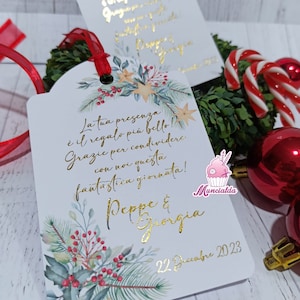 La tua presenza
è il regalo più bello!
Grazie per condividere
con noi questa
fantastica giornata!
Peppe &
Giorgia
22 Dicembre 2023
Muncialda